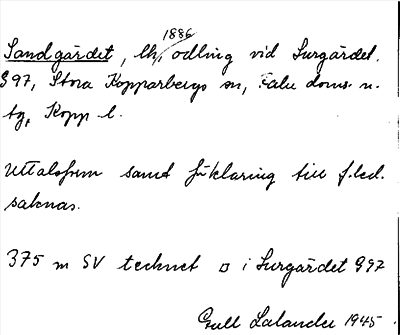 1886
Sandgärdet, lh, odling vid Surgärdet.
G97, Stora Kopparbergs sn, Falu doms. n.
tg, Kopp l.
Uttalsform samt förklaring till f.led.
saknas.
375 m SV tecknet o i Surgärdet G97
Gull Lalander 1945.